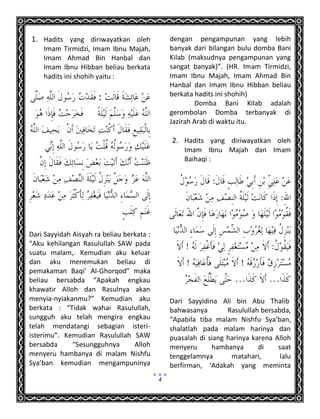 1. Hadits yang diriwayatkan oleh
Imam Tirmidzi, Imam Ibnu Majah,
Imam Ahmad Bin Hanbal dan
Imam Ibnu Hibban beliau berkata
hadits ini shohih yaitu :
عَنْ عَائِشَةَ قَالَتْ : فَقَدْتُ رَسُولَ اللَّهِ صَلَّى
اللَّهُ عَلَيْهِ وَسَلَّمَ لَيْلَةً فَخَرَجْتُ فَإِذَا هُوَ
بِالْبَقِيعِ فَقَالَ أَكُنْتِ تَخَافِينَ أَنْ يَحِيفَ اللَّهُ
عَلَيْكِ وَرَسُولُهُ قُلْتُ يَا رَسُولَ اللَّهِ إِنِّي
ظَنَنْتُ أَنَّكَ أَتَيْتَ بَعْضَ نِسَائِكَ فَقَالَ إِنَّ
اللَّهَ عَزَّ وَجَلَّ يَنْزِلُ لَيْلَةَ النِّصْفِ مِنْ شَعْبَانَ
إِلَى السَّمَاءِ الدُّنْيَا فَيَغْفِرُ لِأَكْثَرَ مِنْ عَدَدِ شَعْرِ
غَنَمِ كَلْبٍ
Dari Sayyidah Aisyah ra beliau berkata :
"Aku kehilangan Rasulullah SAW pada
suatu malam,. Kemudian aku keluar
dan aku menemukan beliau di
pemakaman Baqi' Al-Ghorqod" maka
beliau bersabda "Apakah engkau
khawatir Alloh dan Rasulnya akan
menyia-nyiakanmu?" Kemudian aku
berkata : "Tidak wahai Rasulullah,
sungguh aku telah mengira engkau
telah mendatangi sebagian isteri-
isterimu". Kemudian Rasulullah SAW
bersabda "Sesungguhnya Alloh
menyeru hambanya di malam Nishfu
Sya'ban kemudian mengampuninya
dengan pengampunan yang lebih
banyak dari bilangan bulu domba Bani
Kilab (maksudnya pengampunan yang
sangat banyak)". (HR. Imam Tirmidzi,
Imam Ibnu Majah, Imam Ahmad Bin
Hanbal dan Imam Ibnu Hibban beliau
berkata hadits ini shohih)
Domba Bani Kilab adalah
gerombolan Domba terbanyak di
Jazirah Arab di waktu itu.
2. Hadits yang diriwayatkan oleh
Imam Ibnu Majah dan Imam
Baihaqi :
عَنْ عَلِيِّ بْنِ أَبِيْ طَالِبٍ قَالَ: قَالَ رَسُوْلُ
اللهِ: إِذَا كَانَتْ لَيْلَةُ النصفِ مِنْ شَعْبَانَ
فَقُوْمُوْا لَيْلَهَا وَ صُوْمُوْا نَهَارَهَا فَإِنَّ اللَّهَ تَعَالَى
يَنْزِلُ فِيْهَا لِغُرُوْبِ الشَّمْسِ إِلَى سَمَاءِ الدُّنْيَا
فَيَقُوْلُ: أَلاَ مِنْ مُسْتَغْفِرٍ لِيْ فَأَغْفِرَ لَهُ ! أَلاَ
مُسْتَرْزِقٌ فَأَرْزُقَهُ ! أَلاَ مُبْتَلًى فَأُعَافِيَهُ ! أَلاَ
كَذَا… أَلاَ كَذَا… حَتَّى يَطْلُعَ الفَجْرُ
Dari Sayyidina Ali bin Abu Thalib
bahwasanya Rasulullah bersabda,
"Apabila tiba malam Nishfu Sya'ban,
shalatlah pada malam harinya dan
puasalah di siang harinya karena Alloh
menyeru hambanya di saat
tenggelamnya matahari, lalu
berfirman, 'Adakah yang meminta
4